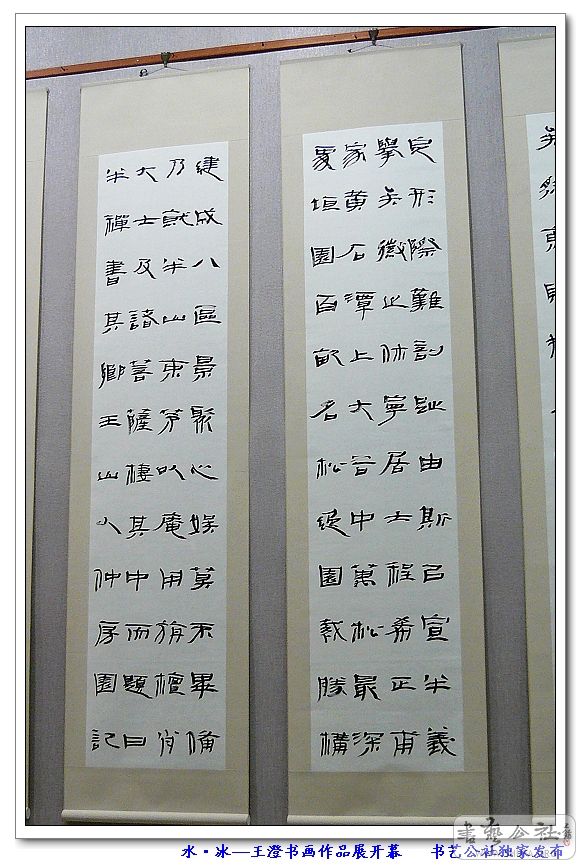 形際難趾由斯已宣半義
舉无徵止休寧居士程希正甫
家黃石潭上大谷中萬松最深
爰垣園百畝名松園載勝構
建成八區景聚心娱莫不畢備
乃就半山東茅以庵用旃檀肖
大士及諸菩薩棲其中而題曰
半禪書其鄉王山人仲房園記
書藝公社
水·冰—王澄书画作品展开幕 书艺公社独家发布